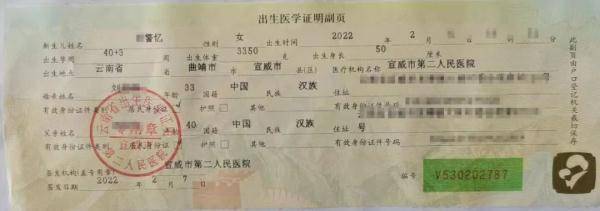 出生医学证明副页
新生儿姓名 警忆 性别 女 出生时间 2022 年 2 月
出生孕周 40+3 出生体重 3350 克 出生身长 50 厘米
出生地点 云南省 曲靖市 宣威市 县(区) 医疗机构名称 宣威市第二人民医院
母亲姓名 刘 年龄 33 国籍 中国 民族 汉族 住址
有效身份证件类别 居民身份证 护照 其他 有效身份证件号码
父亲姓名 40 中国 民族 汉族 住址 号
有效身份证件类别 居民身份证 护照 其他 有效身份证件号码
签发机构(盖专用章) 宣威市第二人民医院
签发日期 2022 年 2 月 7 日
编号 V530202787
此副页由户口登记机关裁切保存
第二人民医院